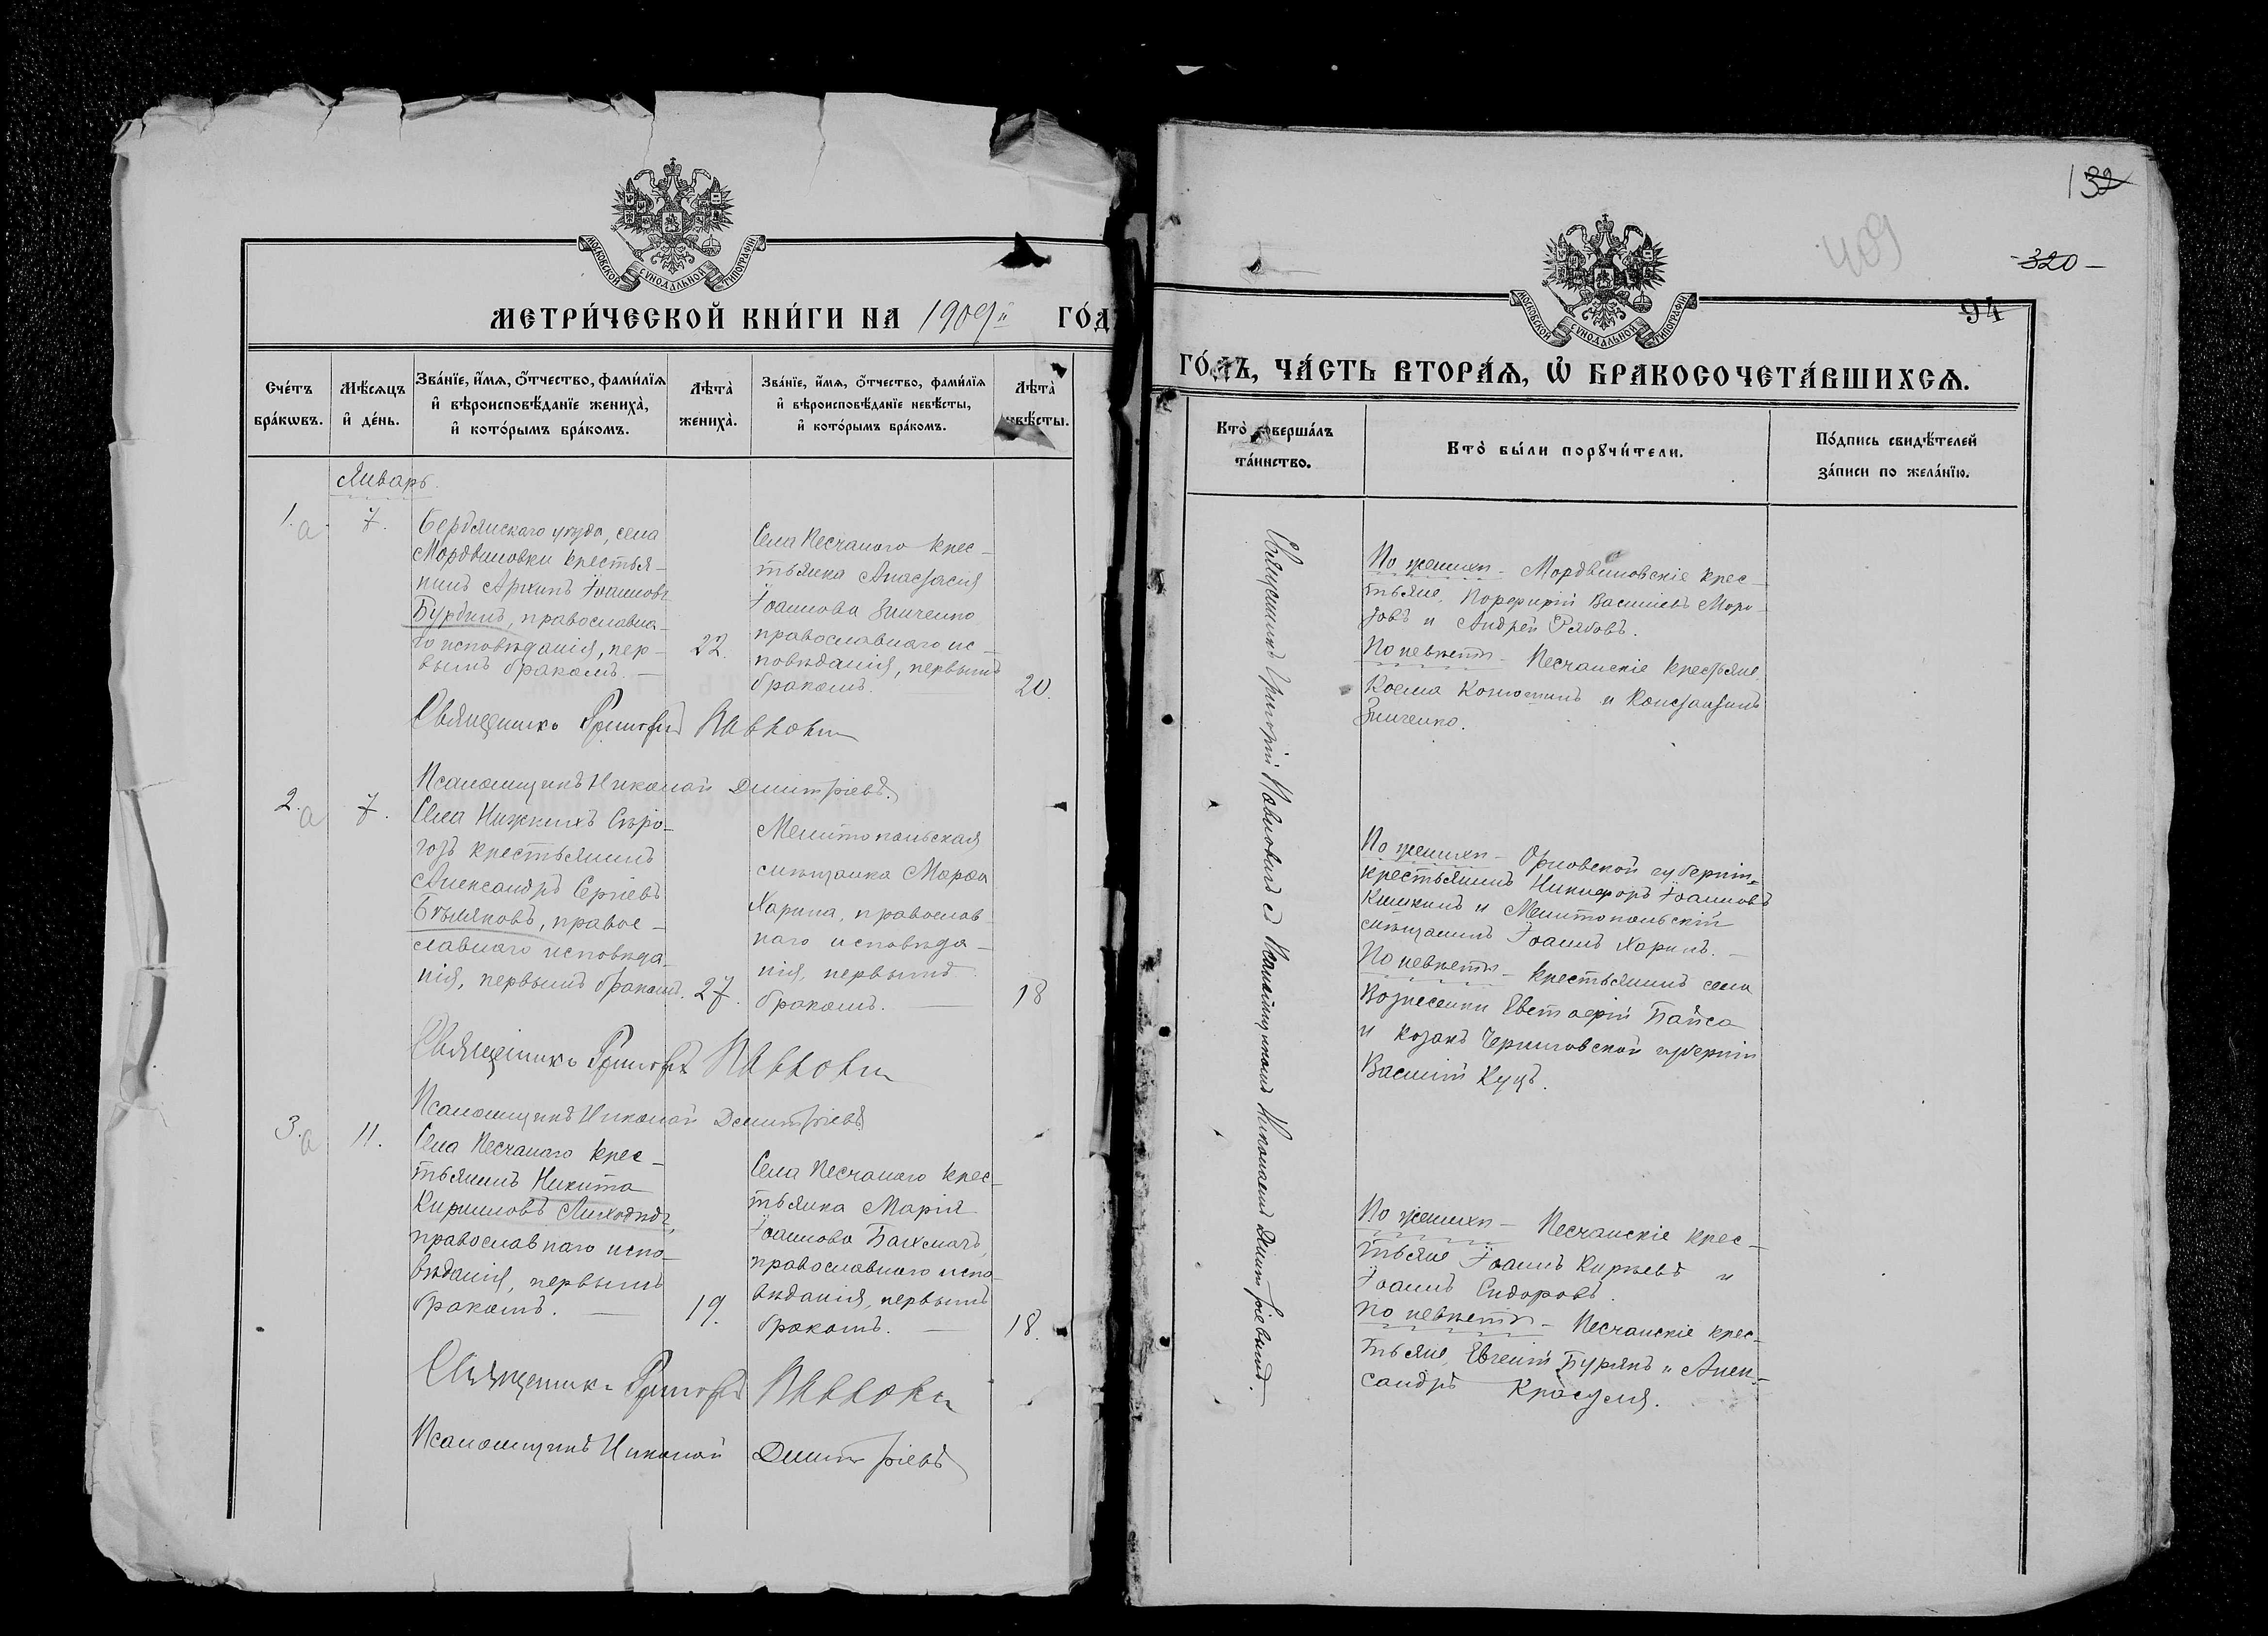 МОСКОВСКОЙ СѴНОДАЛЬНОЙ ТИПОГРАФІИ
МЕТРИ́ЧЕСКОЙ КНИ́ГИ НА 1909й ГО́Д
Сче́тъ бра́кѡвъ.
Мѣ́сяцъ и҆ де́нь.
Зва́нїе, и҆́мѧ, ѻ҆́тчество, фами́лїѧ
и҆ вѣроисповѣ́данїе жениха̀,
и҆ кото́рымъ бра́комъ.
Лѣта̀ жениха̀.
Зва́нїе, и҆́мѧ, ѻ҆́тчество, фами́лїѧ
и҆ вѣроисповѣ́данїе невѣ́сты,
и҆ кото́рымъ бра́комъ.
Лѣта̀ невѣ́сты.
Январь.
1. а
7.
Бердянскаго уѣзда, села
Мордвиновки крестья-
нинъ Архипъ Іоанновъ
Бурдинъ, православна-
го исповѣданія, пер-
вымъ бракомъ. —
22.
Села Песчанаго крес-
тьянка Анастасія
Іоаннова Зинченко
православнаго ис-
повѣданія, первымъ
бракомъ. —
20.
Священникъ Григорій Павловичъ
Псаломщикъ Николай Димитріевъ.
2. а
7.
Села Нижнихъ Сѣро-
гозъ крестьянинъ
Александръ Сергіевъ
Бѣляковъ, правос-
лавнаго исповѣда-
нія, первымъ бракомъ.
27.
Мелитопольская
мѣщанка Марѳа
Харина, православ-
наго исповѣда-
нія, первымъ
бракомъ. —
18
Священникъ Григорій Павловичъ
Псаломщикъ Николай Димитріевъ
3. а
11.
Села Песчанаго крес-
тьянинъ Никита
Кирилловъ Лиходѣдъ,
православнаго испо-
вѣданія, первымъ
бракомъ. —
19.
Села Песчанаго крес-
тьянка Марія
Іоаннова Бахмачъ,
православнаго испо-
вѣданія, первымъ
бракомъ. —
18.
Священникъ Григорій Павловичъ
Псаломщикъ Николай Димитріевъ
132
409
-320-
94
МОСКОВСКОЙ СѴНОДАЛЬНОЙ ТИПОГРАФІИ
ГО́ДЪ, ЧА́СТЬ ВТОРА́Ѧ, Ѡ҆ БРАКОСОЧЕТА́ВШИХСѦ.
Кто̀ соверша́лъ
та́инство.
Кто̀ бы́ли порꙋчи́тели.
По́дпись свидѣ́телей
за́писи по жела́нїю.
Священникъ Григорій Павловичъ съ Псаломщикомъ Николаемъ Димитріевымъ.
По женихѣ — Мордвиновскіе крес-
тьяне, Порфирій Васильевъ Моро-
зовъ и Андрей Рябовъ.
По невѣстѣ — Песчанскіе крестьяне,
Косма Конюшинъ и Константинъ
Зинченко.
По женихѣ — Орловской губерніи
крестьянинъ Никифоръ Іоанновъ
Кишкинъ и Мелитопольскій
мѣщанинъ Іоаннъ Харинъ. —
По невѣстѣ — крестьянинъ села
Вознесенки Евстафій Байса
и козакъ Черниговской губерніи
Василій Куцъ.
По женихѣ — Песчанскіе крес-
тьяне Іоаннъ Кирѣевъ и
Іоаннъ Сидоровъ.
По невѣстѣ — Песчанскіе крес-
тьяне, Евгеній Бурякъ и Алек-
сандръ Красуля.